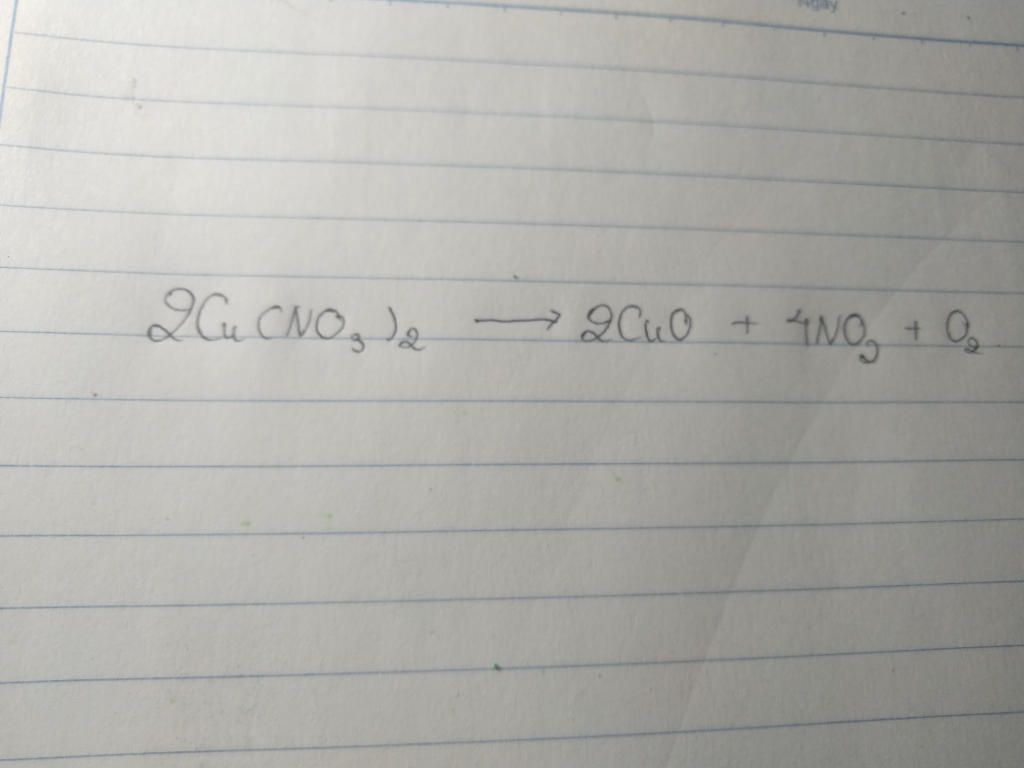 Ngày
2Cu(NO₃)₂ → 2CuO + 4NO₃ + O₂